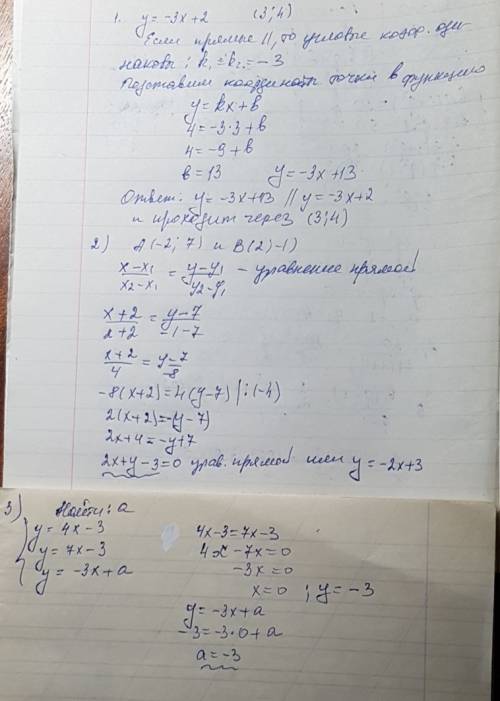 1. y = -3x + 2 (3; 4)
Если прямые ||, то угловые коэф. оди-
наковы: k₁ = k₂ = -3
Подставим координаты точки в функцию
y = kx + b
4 = -3·3 + b
4 = -9 + b
b = 13 y = -3x + 13
Ответ: y = -3x + 13 || y = -3x + 2
и проходит через (3; 4)
2) A(-2; 7) и B(2; -1)
(x - x₁)/(x₂ - x₁) = (y - y₁)/(y₂ - y₁) - уравнение прямой
(x + 2)/(2 + 2) = (y - 7)/(-1 - 7)
(x + 2)/4 = (y - 7)/-8
-8(x + 2) = 4(y - 7) | :(-4)
2(x + 2) = -(y - 7)
2x + 4 = -y + 7
2x + y - 3 = 0 урав. прямой или y = -2x + 3
3) Найти: a
y = 4x - 3 4x - 3 = 7x - 3
y = 7x - 3 4x - 7x = 0
y = -3x + a -3x = 0
x = 0 ; y = -3
y = -3x + a
-3 = -3·0 + a
a = -3